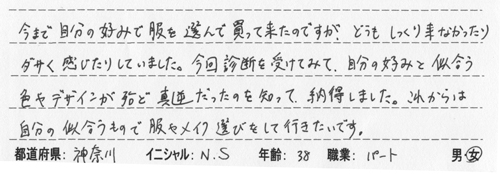 今まで自分の好みで服を選んで買って来たのですが、どうもしっくり来なかったり
ダサく感じたりしていました。今回診断を受けてみて、自分の好みと似合う
色やデザインが殆ど真逆だったのを知って、納得しました。これからは
自分の似合うもので服やメイク選びをして行きたいです。
都道府県：神奈川 イニシャル：N.S 年齢：38 職業：パート 男・女